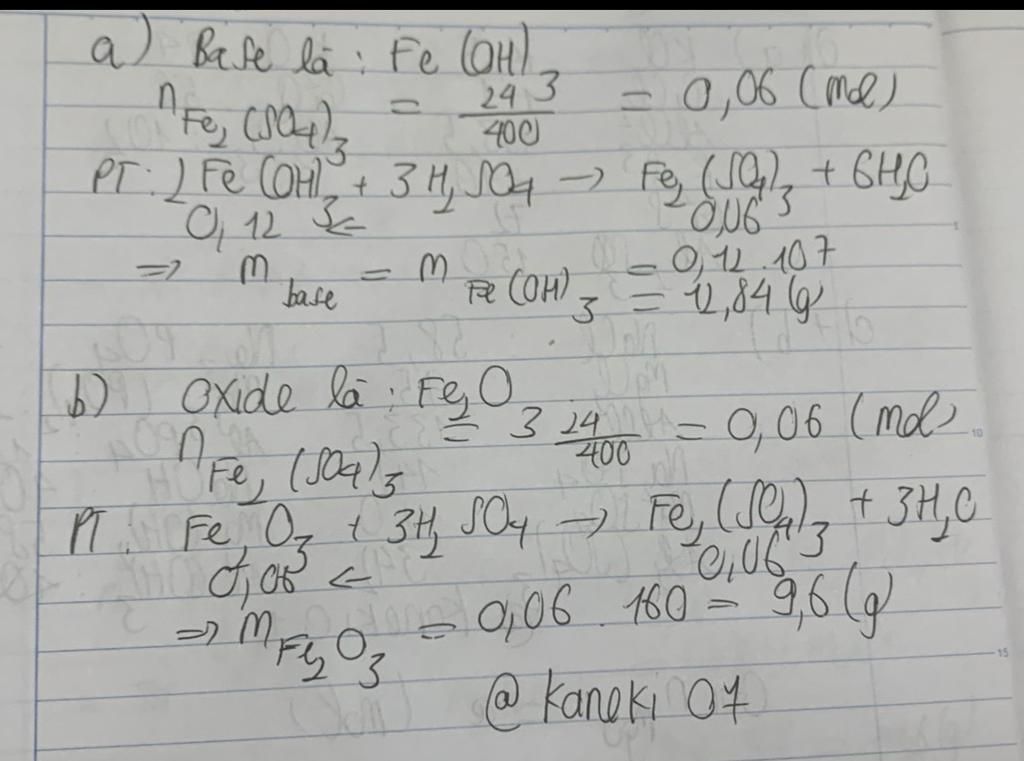 a) Base là : Fe(OH)3
nFe2(SO4)3 = 24/400 = 0,06 (mol)
PT: 2Fe(OH)3 + 3H2SO4 → Fe2(SO4)3 + 6H2O
0,12 ← 0,06
=> m base = m Fe(OH)3 = 0,12.107
= 12,84 (g)
b) Oxide là : Fe2O3
nFe2(SO4)3 = 24/400 = 0,06 (mol)
PT: Fe2O3 + 3H2SO4 → Fe2(SO4)3 + 3H2O
0,06 ← 0,06
=> mFe2O3 = 0,06 . 160 = 9,6 (g)
@kaneki 07